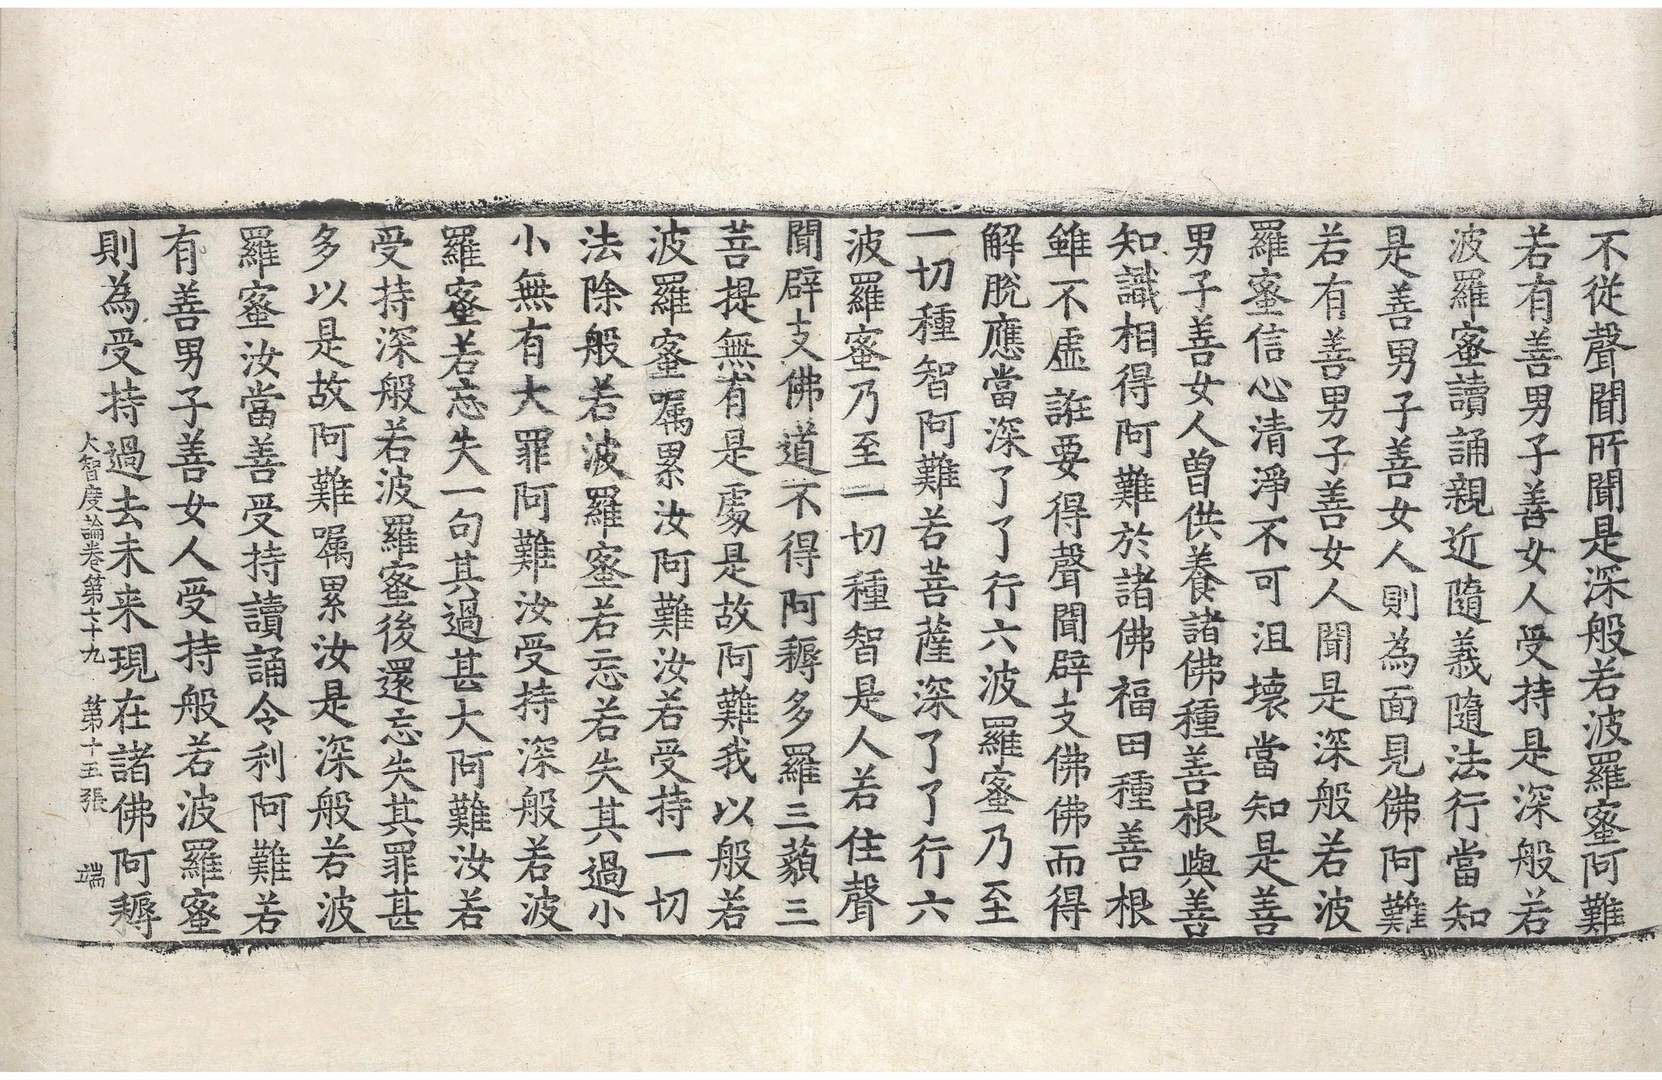 不從聲聞所聞是深般若波羅蜜阿難
若有善男子善女人受持是深般若
波羅蜜讀誦親近隨義隨法行當知
是善男子善女人則為面見佛阿難
若有善男子善女人聞是深般若波
羅蜜信心清淨不可沮壞當知是善
男子善女人曾供養諸佛種善根與善
知識相得阿難於諸佛福田種善根
雖不虛誑要得聲聞辟支佛佛而得
解脫應當深了了行六波羅蜜乃至
一切種智阿難若菩薩深了了行六
波羅蜜乃至一切種智是人若住聲
聞辟支佛道不得阿耨多羅三藐三
菩提無有是處是故阿難我以般若
波羅蜜囑累汝阿難汝若受持一切
法除般若波羅蜜若忘若失其過小
小無有大罪阿難汝受持深般若波
羅蜜若忘失一句其過甚大阿難汝若
受持深般若波羅蜜後還忘失其罪甚
多以是故阿難囑累汝是深般若波
羅蜜汝當善受持讀誦令利阿難若
有善男子善女人受持般若波羅蜜
則為受持過去未來現在諸佛阿耨
大智度論卷第七十九 第十五張 端